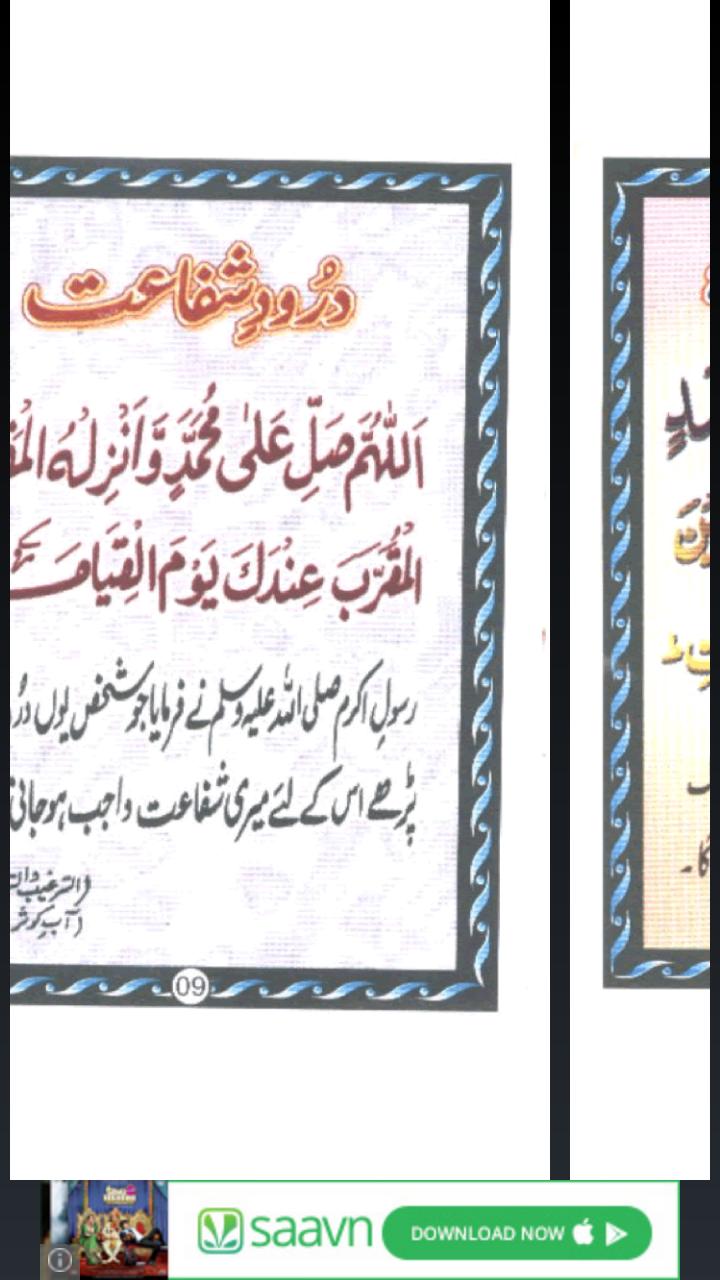 درُودِ شفاعت
اَللّٰهُمَّ صَلِّ عَلٰى مُحَمَّدٍ وَّاَنْزِلْهُ
الْمُقَرَّبَ عِنْدَكَ يَوْمَ الْقِيَامَةِ
رسولِ اکرم صلی اللہ علیہ وسلم نے فرمایا جو شخص یوں
پڑھے اس کے لئے میری شفاعت واجب ہوجاتی
(الترغیب
(آبِ کوثر
09
saavn
DOWNLOAD NOW